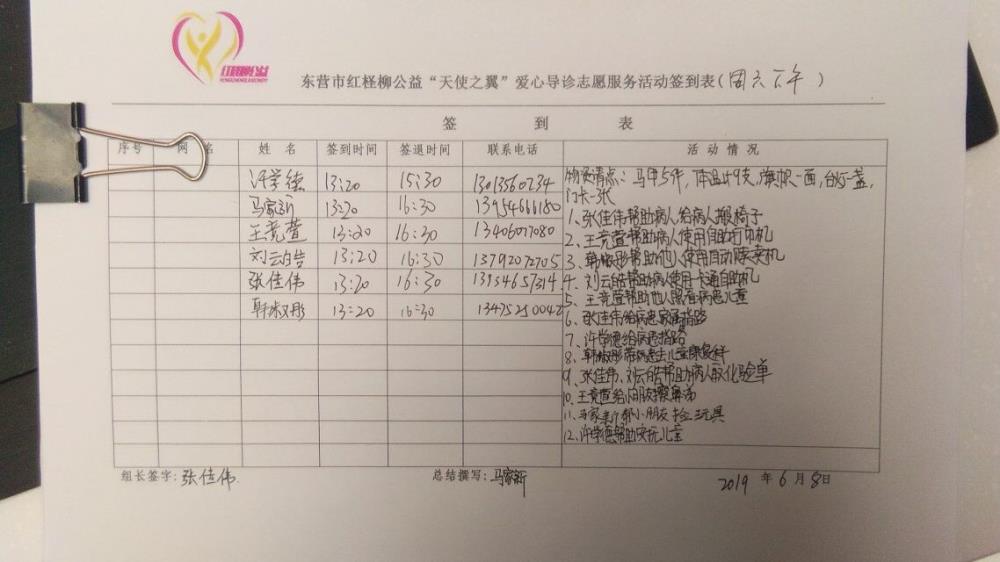 红柽柳公益
东营市红柽柳公益“天使之翼”爱心导诊志愿服务活动签到表(周六下午)
签 到 表
序号 网 名 姓 名 签到时间 签退时间 联系电话 活 动 情 况
许学德 13:20 15:30 13013560234
马家新 13:20 16:30 13954666180
王竞萱 13:20 16:30 13406077080
刘云皓 13:20 16:30 13792072705
张佳伟 13:20 16:30 13954657314
韩淑彤 13:20 16:30 13475250042
物资清点:马甲5件,体温计9支,旗帜一面,台灯一盏,
门卡一张
1、张佳伟帮助病人给病人搬椅子
2、王竞萱帮助病人使用自助打印机
3、韩淑彤帮助他人使用自动贩卖机
4、刘云皓帮助病人使用一卡通自助机
5、王竞萱帮助他人照看病患儿童
6、张佳伟给病患家属指路
7、许学德给病患指路
8、韩淑彤带病患去儿童康复科
9、张佳伟、刘云皓帮助病人取化验单
10、王竞萱给小朋友擦鼻涕
11、马家新帮小朋友捡玩具
12、许学德帮助安抚儿童
组长签字:张佳伟 总结撰写:马家新 2019 年 6 月 8 日